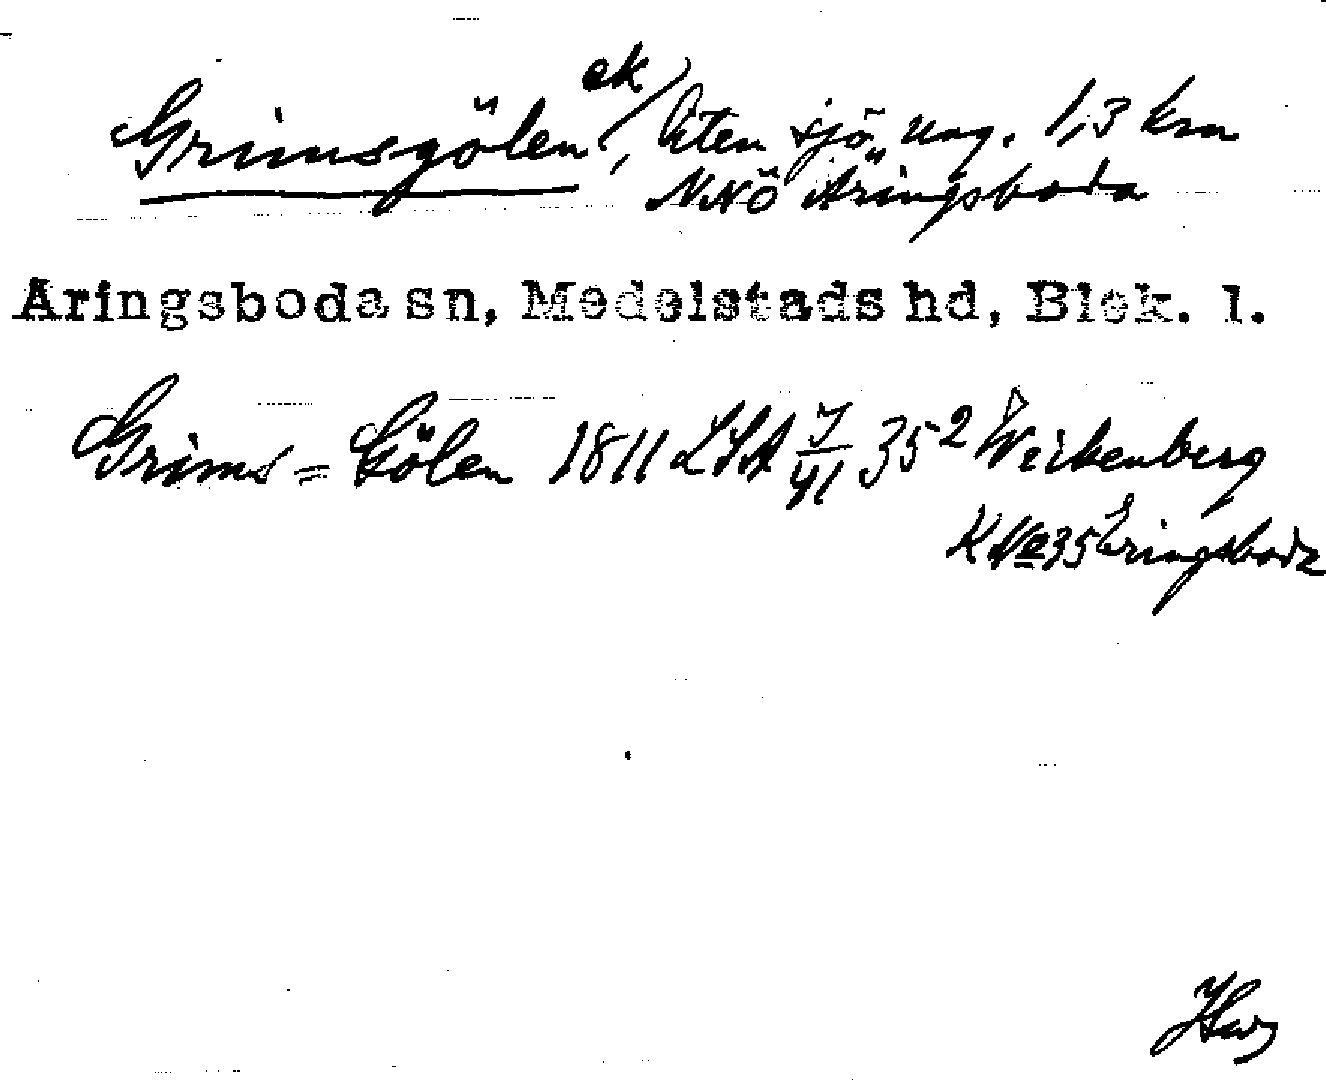 Grimsgölen (ek), liten sjö, ung. 1,3 km
NNÖ Äringsboda
Aringsboda sn, Medelstads hd, Blek. l.
Grims=Gölen 1811 LSA 35²
K No 35 Eringsboda